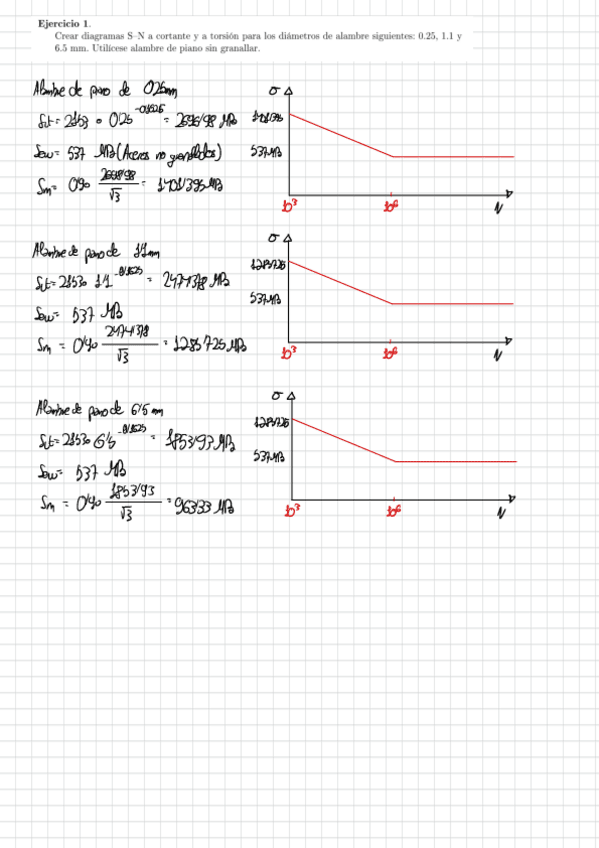 Ejercicio 1.
Crear diagramas S–N a cortante y a torsión para los diámetros de alambre siguientes: 0.25, 1.1 y
6.5 mm. Utilícese alambre de piano sin granallar.
Alambre de piano de 0'25mm
Sut = 2153 · 0'25^-0'1625 = 2696'98 MPa
Sew = 537 MPa (Aceros no granallados)
Sm = 0'90 2696'98/√3 = 1401'395 MPa
σ
1401'395
537MPa
10³
10⁶
N
Alambre de piano de 1'1mm
Sut = 2153 · 1'1^-0'1625 =
Sew = 537 MPa
Sm = 0'90 /√3 = 1285'725 MPa
σ
537MPa
10³
10⁶
N
Alambre de piano de 6'5 mm
Sut = 2153 · 6'5^-0'1625 = 1853'93 MPa
Sew = 537 MPa
Sm = 0'90 1853'93/√3 = 963'33 MPa
σ
537MPa
10³
10⁶
N